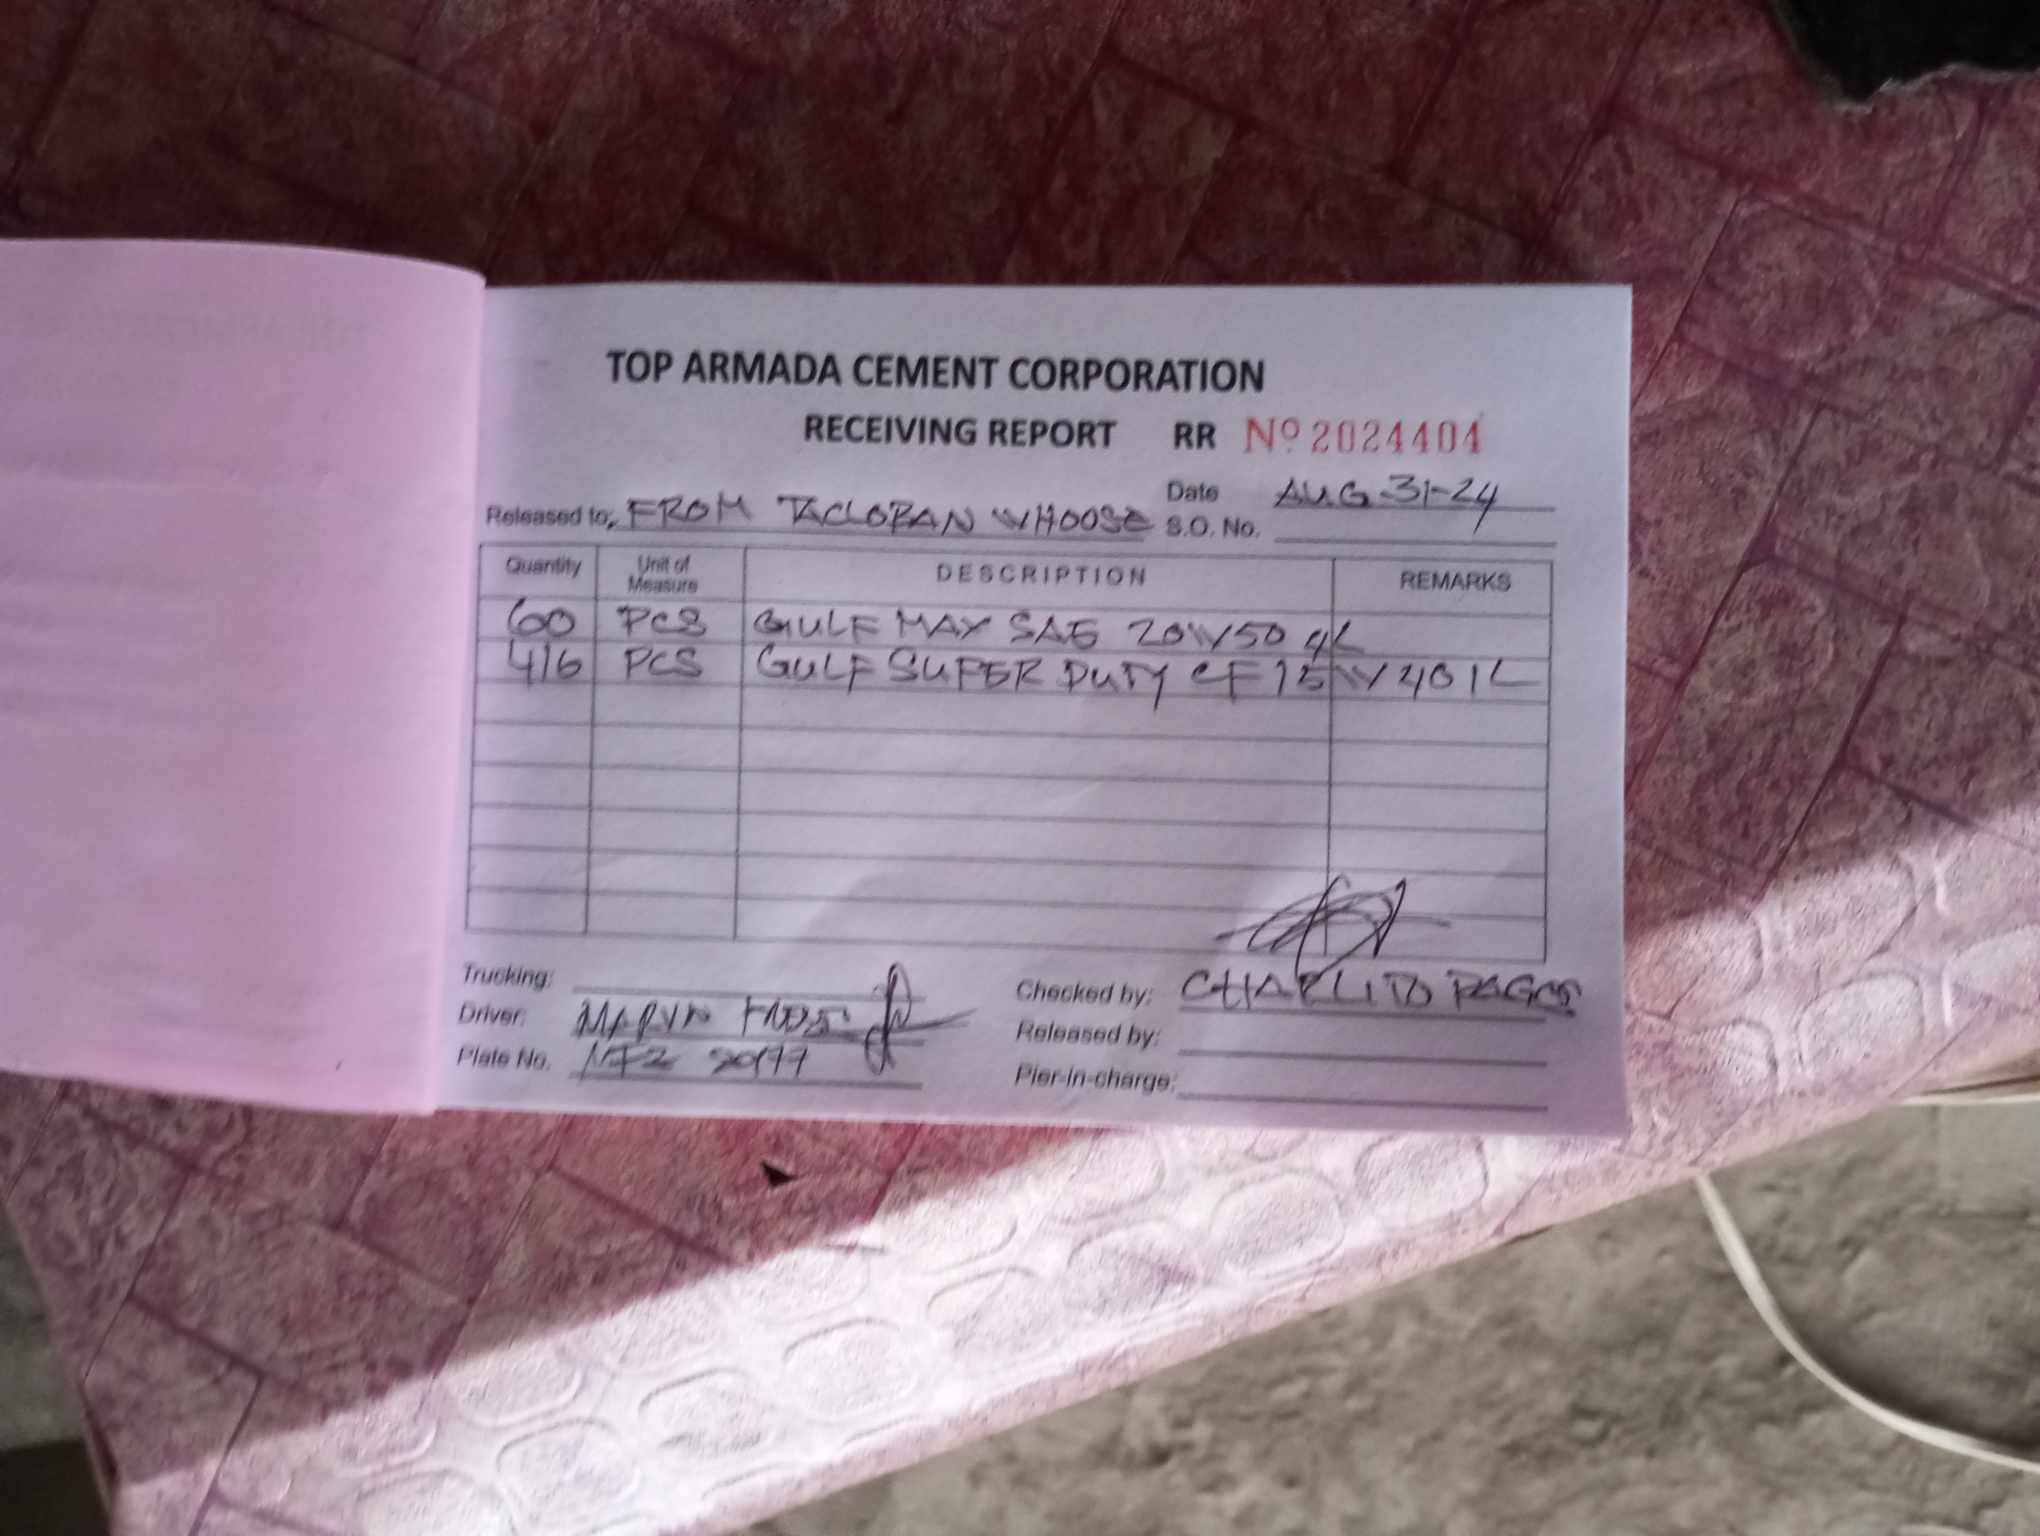 TOP ARMADA CEMENT CORPORATION
RECEIVING REPORT RR Nº 2024404
Date AUG 31-24
Released to; FROM TACLOBAN WHOOSE S.O. No.
Quantity Unit of Measure DESCRIPTION REMARKS
60 PCS GULF MAX SAE 20W50 4L
416 PCS GULF SUPER DUTY CF 15W40 1L
Trucking: Checked by: CHARLITO PAGOS
Driver: MARVIN
Released by:
Plate No.
Pier-in-charge: